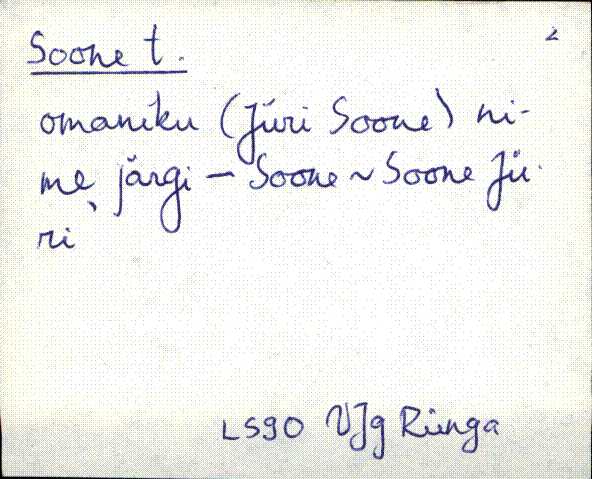 Soone t. 2
omaniku (Jüri Soone) ni-
me, järgi – Soone ~ Soone Jü-
ri
LS90 VJg Rünga